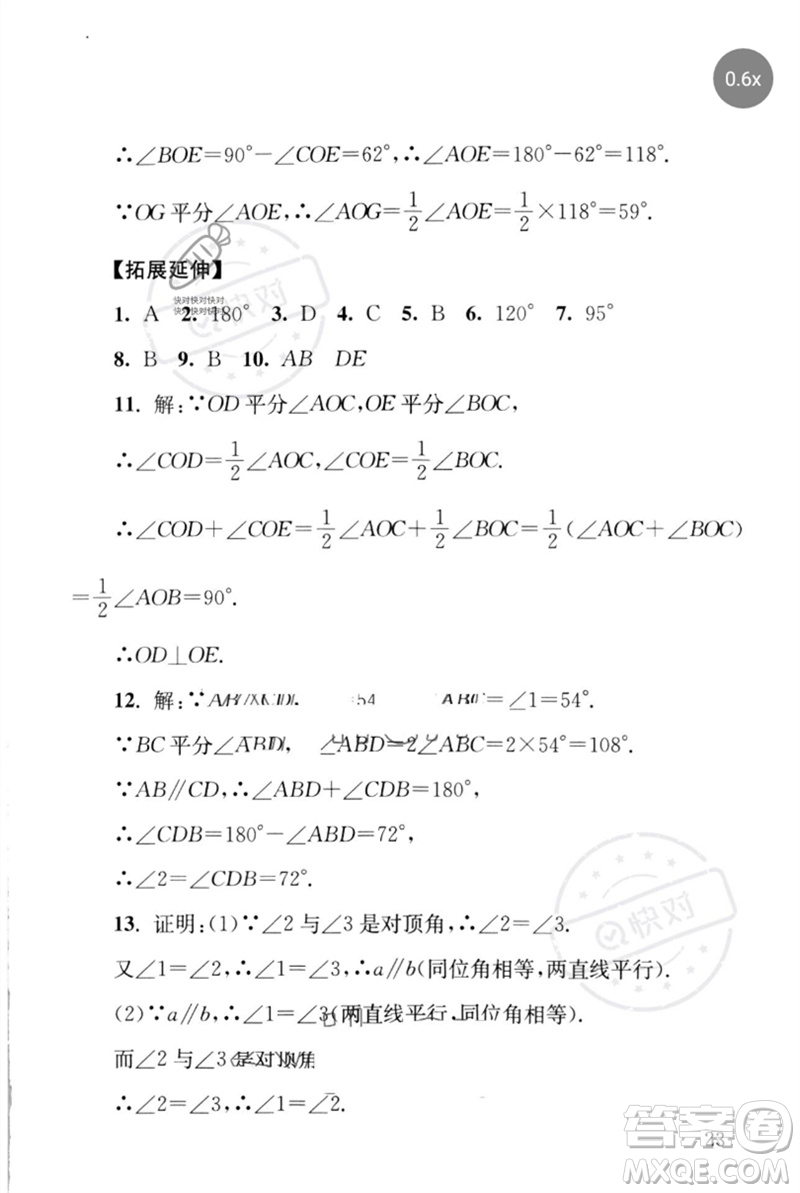 0.6x
∴∠BOE=90°-∠COE=62°,∴∠AOE=180°-62°=118°.
∵OG平分∠AOE,∴∠AOG=1/2∠AOE=1/2×118°=59°.
【拓展延伸】
快对快对快对
快对快对快对
1. A 2. 180° 3. D 4. C 5. B 6. 120° 7. 95°
8. B 9. B 10. AB DE
11. 解:∵OD平分∠AOC,OE平分∠BOC,
∴∠COD=1/2∠AOC,∠COE=1/2∠BOC.
∴∠COD+∠COE=1/2∠AOC+1/2∠BOC=1/2(∠AOC+∠BOC)
=1/2∠AOB=90°.
∴OD⊥OE.
12. 解:∵ =∠1=54°.
∵BC平分∠ABD, ∠ABD=2∠ABC=2×54°=108°.
∵AB∥CD,∴∠ABD+∠CDB=180°,
∴∠CDB=180°-∠ABD=72°,
∴∠2=∠CDB=72°.
快对
13. 证明:(1)∵∠2与∠3是对顶角,∴∠2=∠3.
又∠1=∠2,∴∠1=∠3,∴a∥b(同位角相等,两直线平行).
(2)∵a∥b,∴∠1=∠3(两直线平行,同位角相等).
而∠2与∠3是对顶角
∴∠2=∠3,∴∠1=∠2.
23
答案圈
MXQE.COM